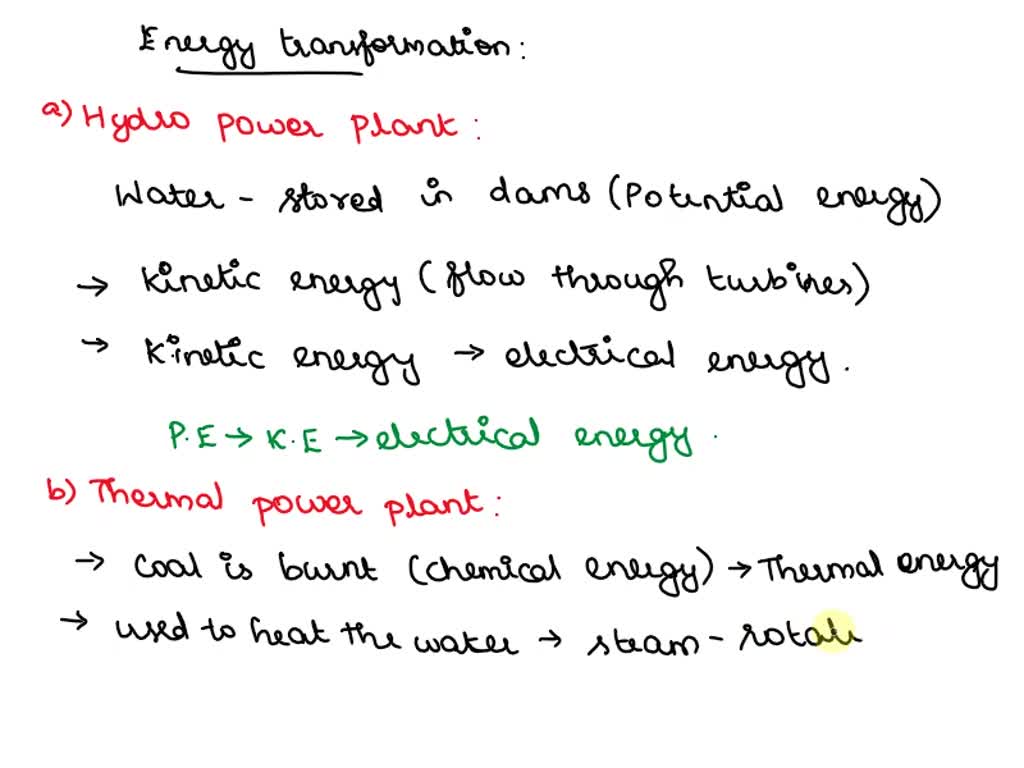 Energy transformation:
a) Hydro power plant:
Water - stored in dams (Potential energy)
→ Kinetic energy (flow through turbines)
→ Kinetic energy → electrical energy.
P.E → K.E → electrical energy.
b) Thermal power plant:
→ Coal is burnt (chemical energy) → Thermal energy
→ used to heat the water → steam - rotate